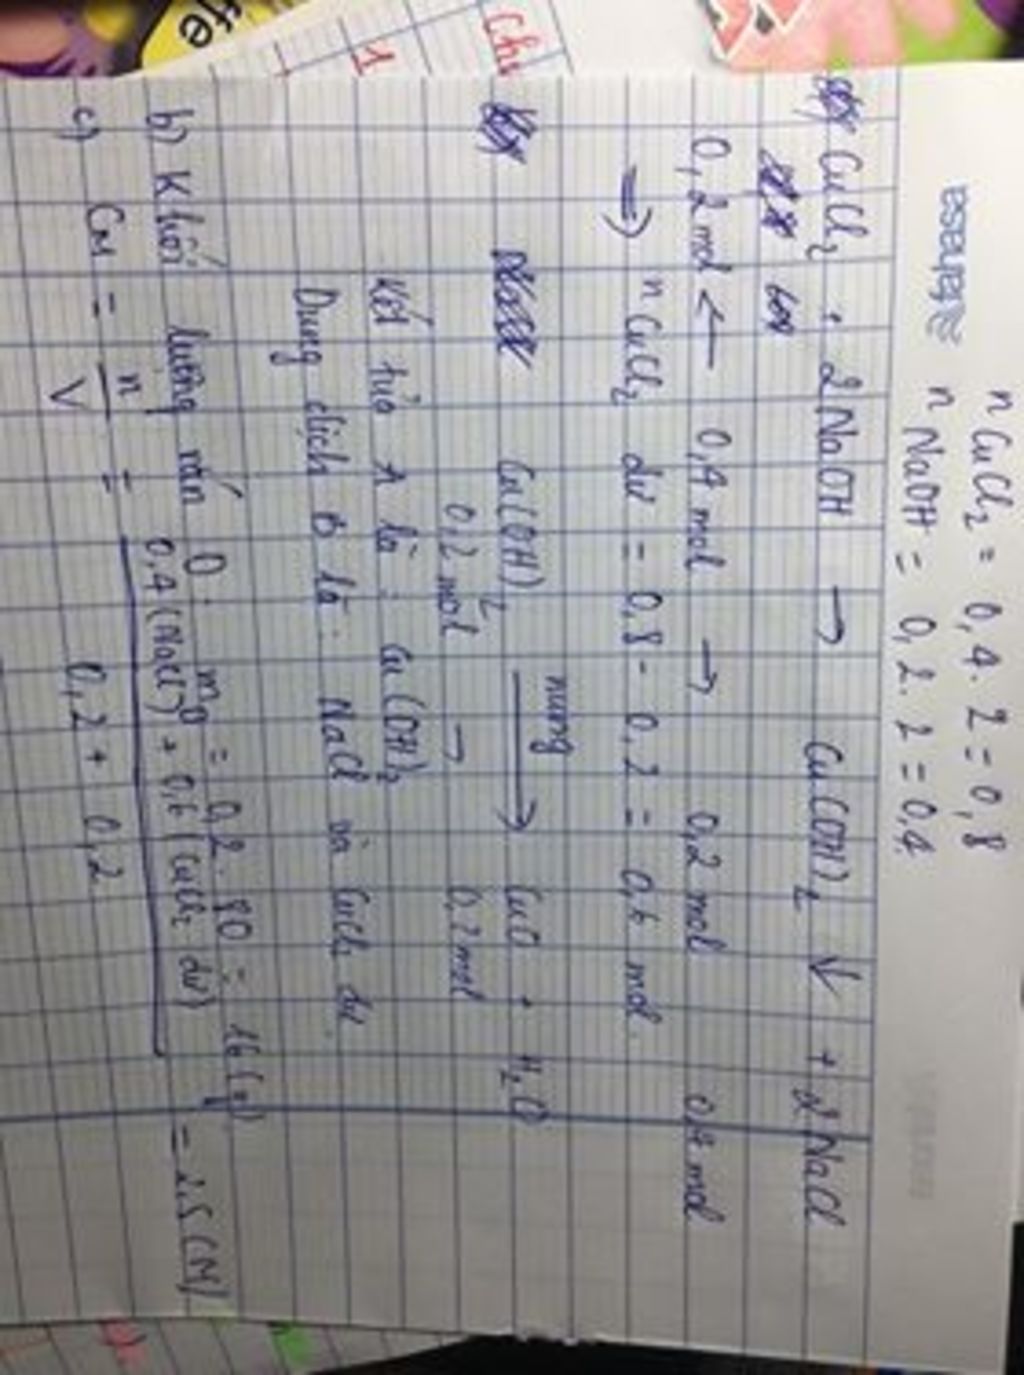 n CuCl₂ = 0,4. 2 = 0,8
tahasa n NaOH = 0,2. 2 = 0,4
CuCl₂ + 2NaOH → Cu(OH)₂ ↓ + 2NaCl
0,2 mol ← 0,4 mol → 0,2 mol 0,4 mol
=> n CuCl₂ dư = 0,8 - 0,2 = 0,6 mol
nung
Cu(OH)₂ → CuO + H₂O
0,2 mol → 0,2 mol
Kết tủa A là : Cu(OH)₂
Dung dịch B là : NaCl và CuCl₂ dư
b) Khối lượng rắn D : mD = 0,2. 80 = 16 (g)
c) CM = n/V = 0,4 (NaCl) + 0,6 (CuCl₂ dư) / 0,2 + 0,2 = 2,5 (M)
Chư
1
ffe